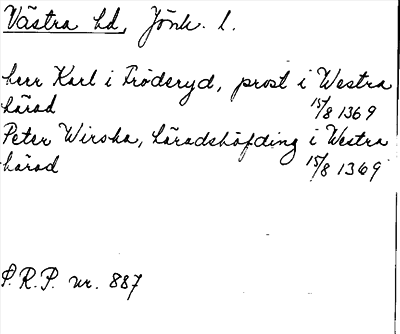 Västra hd, Jönk. l.
herr Karl i Fröderyd, prost i Westra
härad 15/8 1369
Peter Wirska, häradshöfding i Westra
härad 15/8 1369
P.R.P. nr. 887